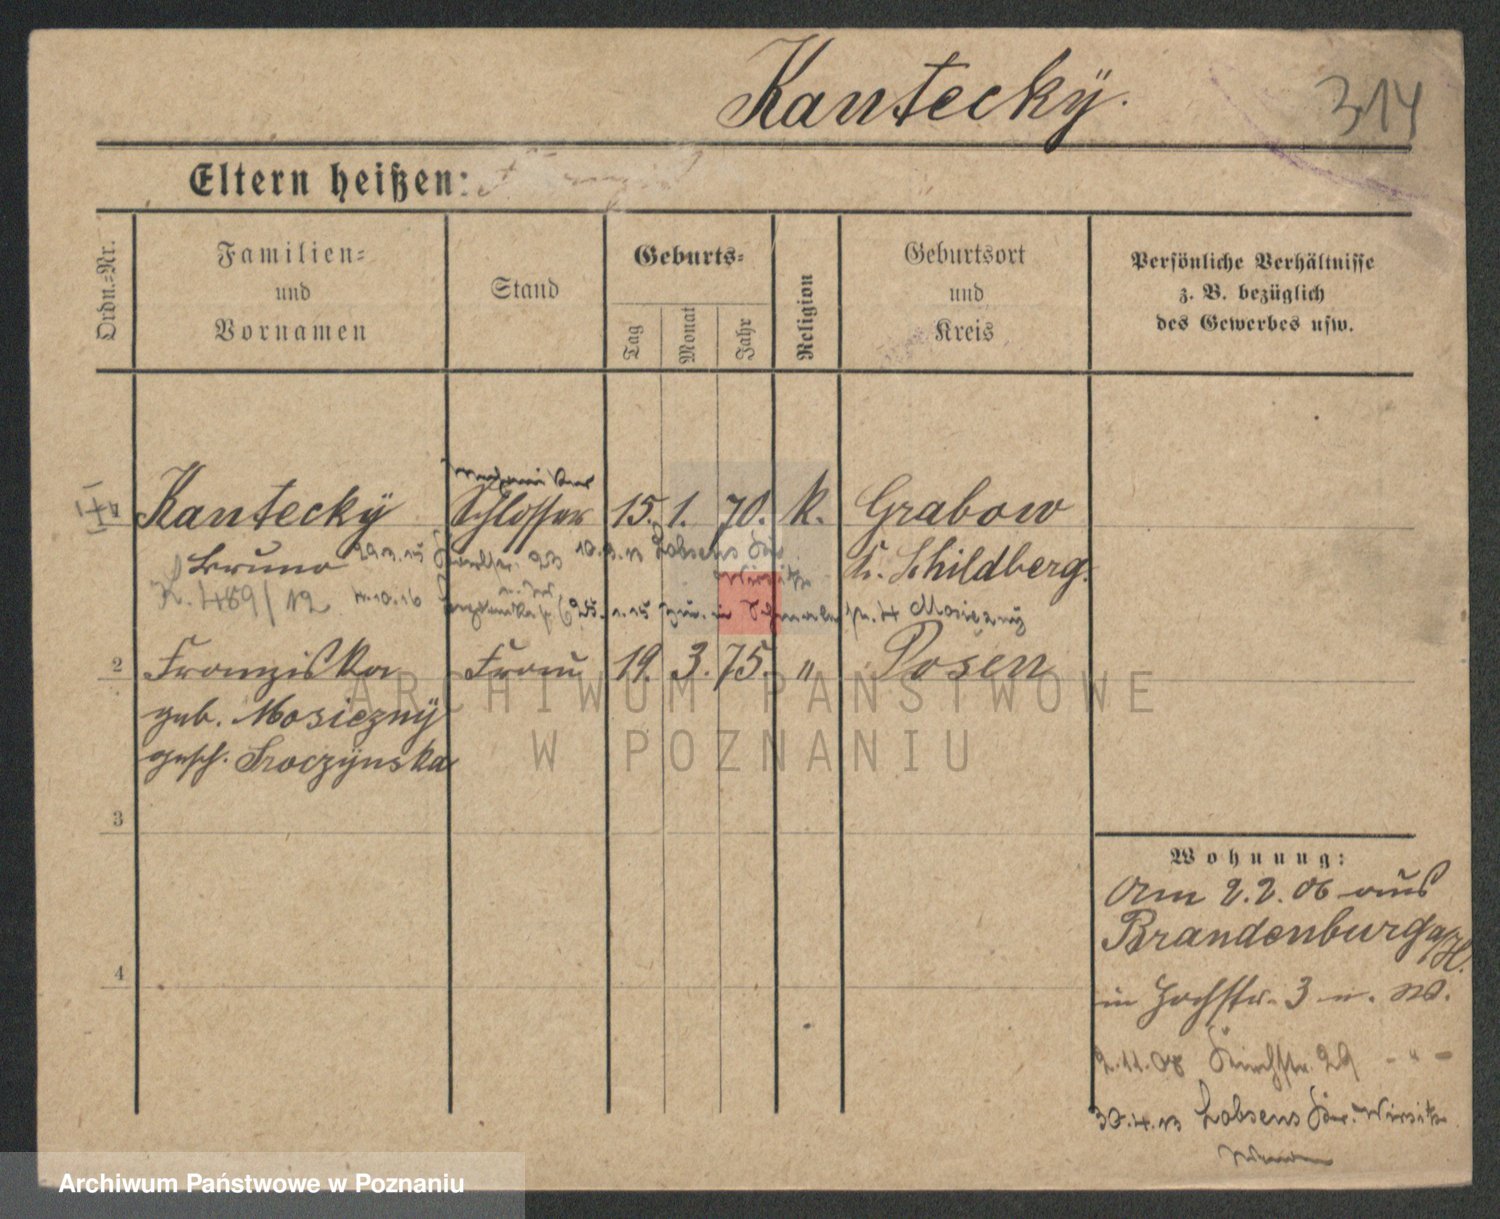 Kantecky.
314
Eltern heißen:
Ordn.-Nr.
Familien-
und
Vornamen
Stand
Geburts-
Tag
Monat
Jahr
Religion
Geburtsort
und
Kreis
Persönliche Verhältnisse
z. B. bezüglich
des Gewerbes usw.
Kantecky Schlosser 15. 1. 70. k. Grabow
Bruno
K. Schildberg.
10.3.13 Lobsens Kr.
Wirsitz
K. 489/12
Mosiezny
2 Franziska Frau 19. 3. 75. " Posen
geb. Mosiezny
gesch. Sroczynska
3
4
Wohnung:
Am 2.2.06 aus
Brandenburg a/H.
in Hochstr. 3 n. W.
2.11.08 Kirchstr. 29 - " -
30.4.13 Lobsens Kr. Wirsitz
ARCHIWUM PAŃSTWOWE
W POZNANIU
Archiwum Państwowe w Poznaniu